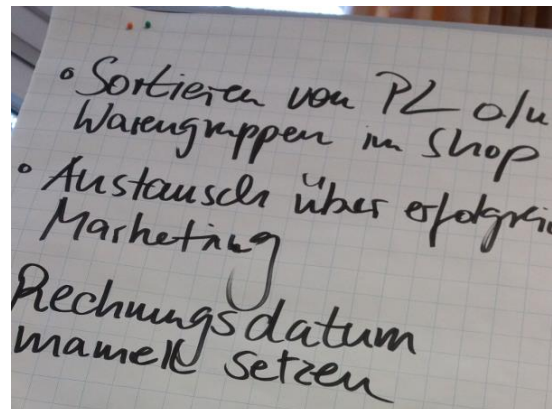 • Sortieren von PL o/u
Warengruppen im Shop
• Austausch über erfolgrei
Marketing
Rechnungsdatum
manuell setzen